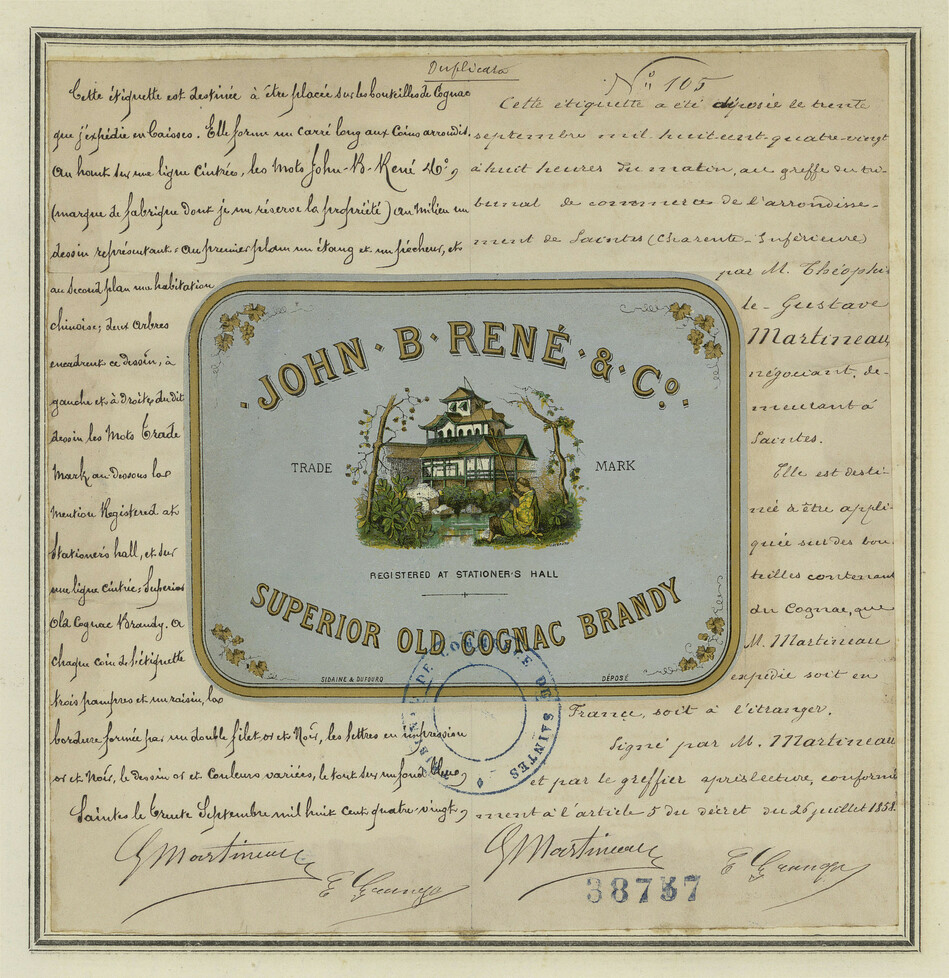 Duplicata
Cette étiquette est destinée à être placée sur les bouteilles de Cognac
que j'expédie en Caisses. Elle forme un carré long aux Coins arrondis.
Au haut sur une ligne Cintrée, les Mots John-B-René & Cº,
(marque de fabrique dont je me réserve la propriété) au Milieu un
dessin représentant: au premier plan un étang et un pêcheur, et
au Second plan une habitation
chinoise; deux arbres
encadrent ce dessin, à
gauche et à Droite, du dit
dessin les Mots Trade
Mark au-dessous la
Mention Registered at
Stationer's hall, et sur
une ligne cintrée: Superior
Old Cognac Brandy. A
chaque coin de l'étiquette
trois pampres et un raisin, la
bordure formée par un double filet or et Noir, les lettres en impression
or et Noir, le Dessin or et Couleurs variées, le tout sur un fond bleu,
Saintes le trente Septembre mil huit Cent quatre-vingt,
G Martineau
E Granga
Nº 105
Cette étiquette a été déposée le trente
septembre mil huit cent quatre-vingt
à huit heures du matin, au greffe du tri-
bunal de commerce de l'arrondisse-
ment de Saintes (Charente-Inférieure)
par M. Théophi-
le-Gustave
Martineau,
négociant, de-
meurant à
Saintes.
Elle est desti-
née à être appli-
quée sur des bou-
teilles contenant
du Cognac, que
M. Martineau
expédie soit en
France, soit à l'étranger.
Signé par M. Martineau
et par le greffier après lecture, conformé
ment à l'article 5 du décret du 26 juillet 1858.
G Martineau
E Granga
38757
JOHN · B · RENÉ · & · Cº
TRADE MARK
REGISTERED AT STATIONER'S HALL
SUPERIOR OLD COGNAC BRANDY
SIDAINE & DUFOURQ
DÉPOSÉ
TRIBUNAL DE COMMERCE DE SAINTES